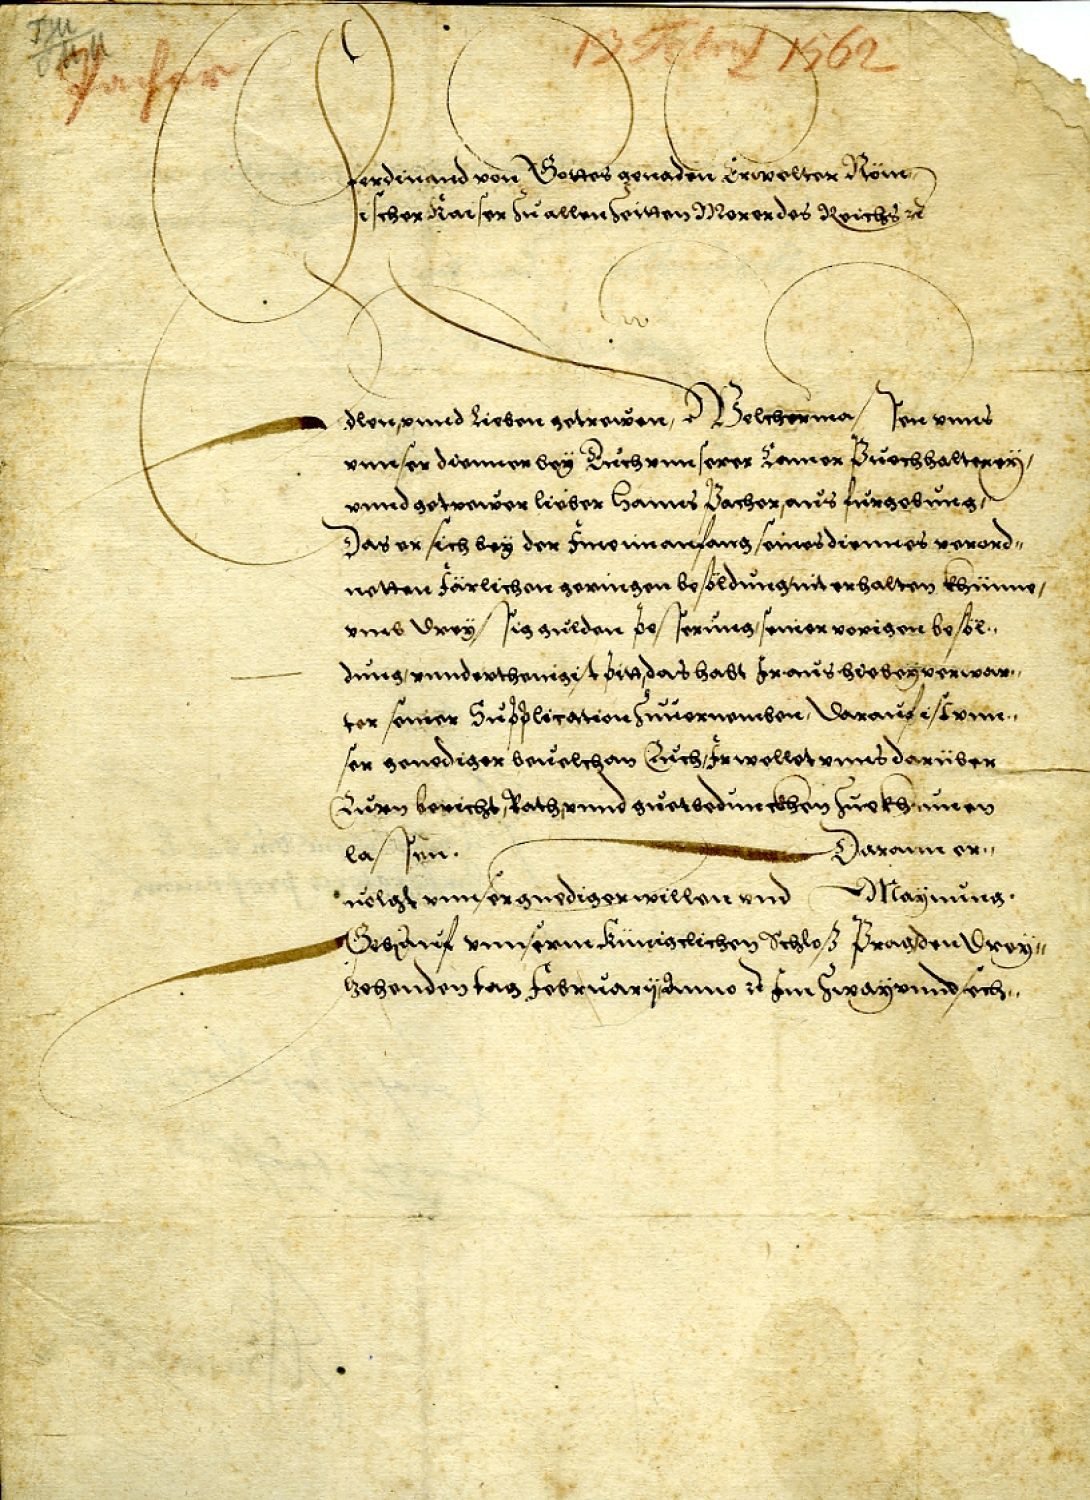 Pacher
13 Februar 1562
Ferdinand von Gottes genaden Erwelter Röm-
ischer Kaiser zu allen Zeitten Merer des Reichs etc
Edlen, vnnd Lieben getrewen, Welchermassen vnns
vnnser dienner bey Euch vnnserer Camer Buechhalterey,
vnnd getrewer lieber Hanns Pacher, aus furgebung,
Das er sich bey der Ime im anfang seines diennes verord-
netten Järlichen geringen besöldung, nit erhalten khünne,
vmb dreyssig gulden pesserung, seiner vorigen besöl-
dung, vnnderthenigist pitt, das habt Ir aus hiebey verwar-
ter seiner Supplication zuuernemben, Darauf ist vnn-
ser genediger beuelch an Euch, Ir wellet vnns darüber
Eurn bericht, Rath, vnnd guetbedunckhen zuekhumen
lassen. Darann er-
uolgt vnnser gnediger willen vnd Maynung.
Geben auf vnnserm Küniglichen Schloß Prag den drey-
zehenden tag Februarij, Anno etc Im zway vnnd sech-